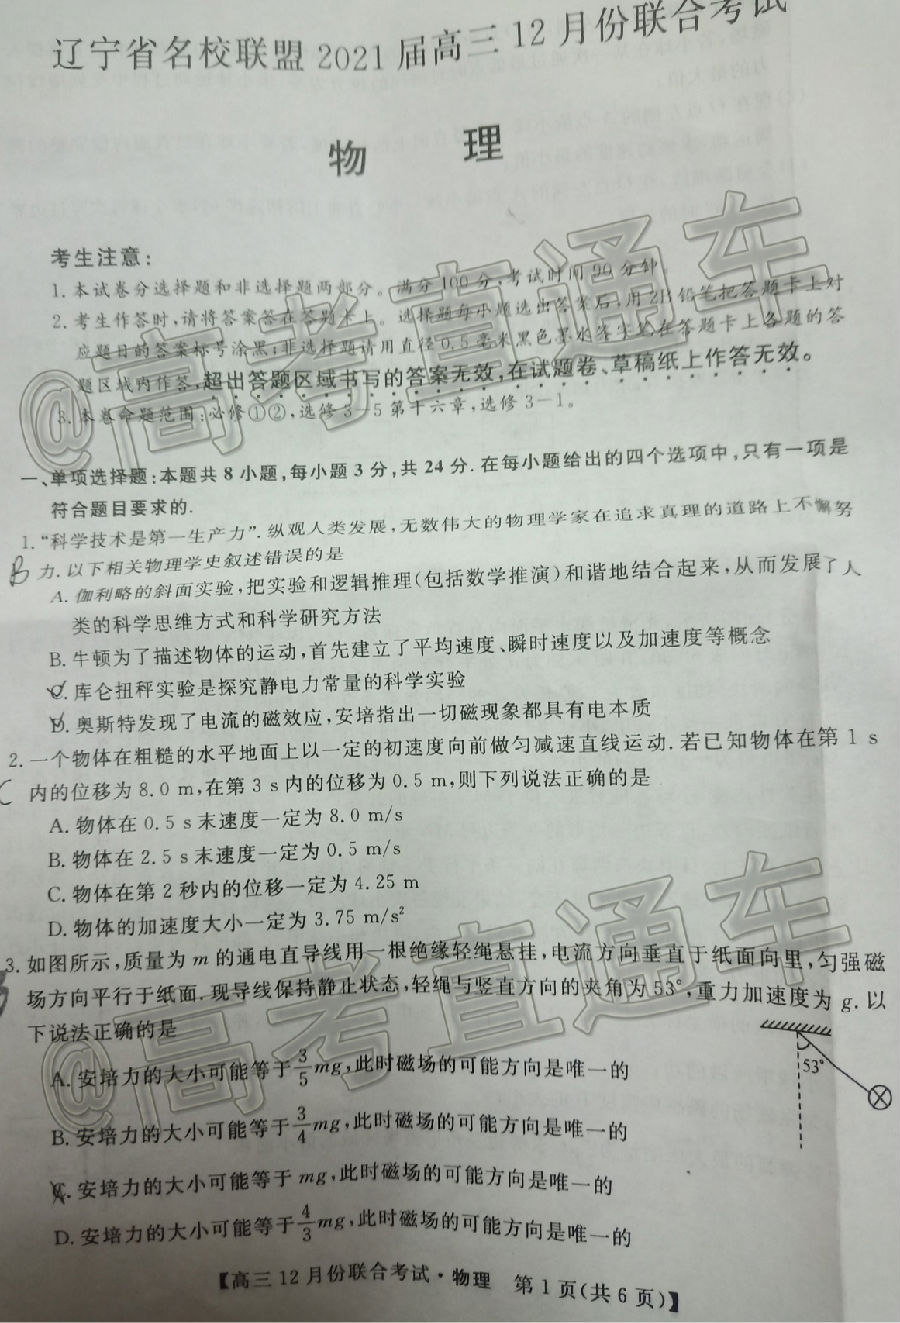 辽宁省名校联盟2021届高三12月份联合考试
物 理
考生注意:
1.本试卷分选择题和非选择题两部分。满分100分,考试时间90分钟。
2.考生作答时,请将答案答在答题卡上。选择题每小题选出答案后,用2B铅笔把答题卡上对
应题目的答案标号涂黑;非选择题请用直径0.5毫米黑色墨水签字笔在答题卡上各题的答
题区域内作答,超出答题区域书写的答案无效,在试题卷、草稿纸上作答无效。
3.本卷命题范围:必修①②,选修3-5第十六章,选修3-1。
一、单项选择题:本题共8小题,每小题3分,共24分.在每小题给出的四个选项中,只有一项是
符合题目要求的.
1.“科学技术是第一生产力”.纵观人类发展,无数伟大的物理学家在追求真理的道路上不懈努
B 力.以下相关物理学史叙述错误的是
A.伽利略的斜面实验,把实验和逻辑推理(包括数学推演)和谐地结合起来,从而发展了人
类的科学思维方式和科学研究方法
B.牛顿为了描述物体的运动,首先建立了平均速度、瞬时速度以及加速度等概念
C.库仑扭秤实验是探究静电力常量的科学实验
D.奥斯特发现了电流的磁效应,安培指出一切磁现象都具有电本质
2.一个物体在粗糙的水平地面上以一定的初速度向前做匀减速直线运动.若已知物体在第1 s
C 内的位移为8.0 m,在第3 s内的位移为0.5 m,则下列说法正确的是
A.物体在0.5 s末速度一定为8.0 m/s
B.物体在2.5 s末速度一定为0.5 m/s
C.物体在第2秒内的位移一定为4.25 m
D.物体的加速度大小一定为3.75 m/s²
3.如图所示,质量为m的通电直导线用一根绝缘轻绳悬挂,电流方向垂直于纸面向里,匀强磁
场方向平行于纸面.现导线保持静止状态,轻绳与竖直方向的夹角为53°,重力加速度为g.以
下说法正确的是
53°
A.安培力的大小可能等于3/5mg,此时磁场的可能方向是唯一的
B.安培力的大小可能等于3/4mg,此时磁场的可能方向是唯一的
C.安培力的大小可能等于mg,此时磁场的可能方向是唯一的
D.安培力的大小可能等于4/3mg,此时磁场的可能方向是唯一的
【高三12月份联合考试·物理 第1页(共6页)】
@高考直通车
@高考直通车